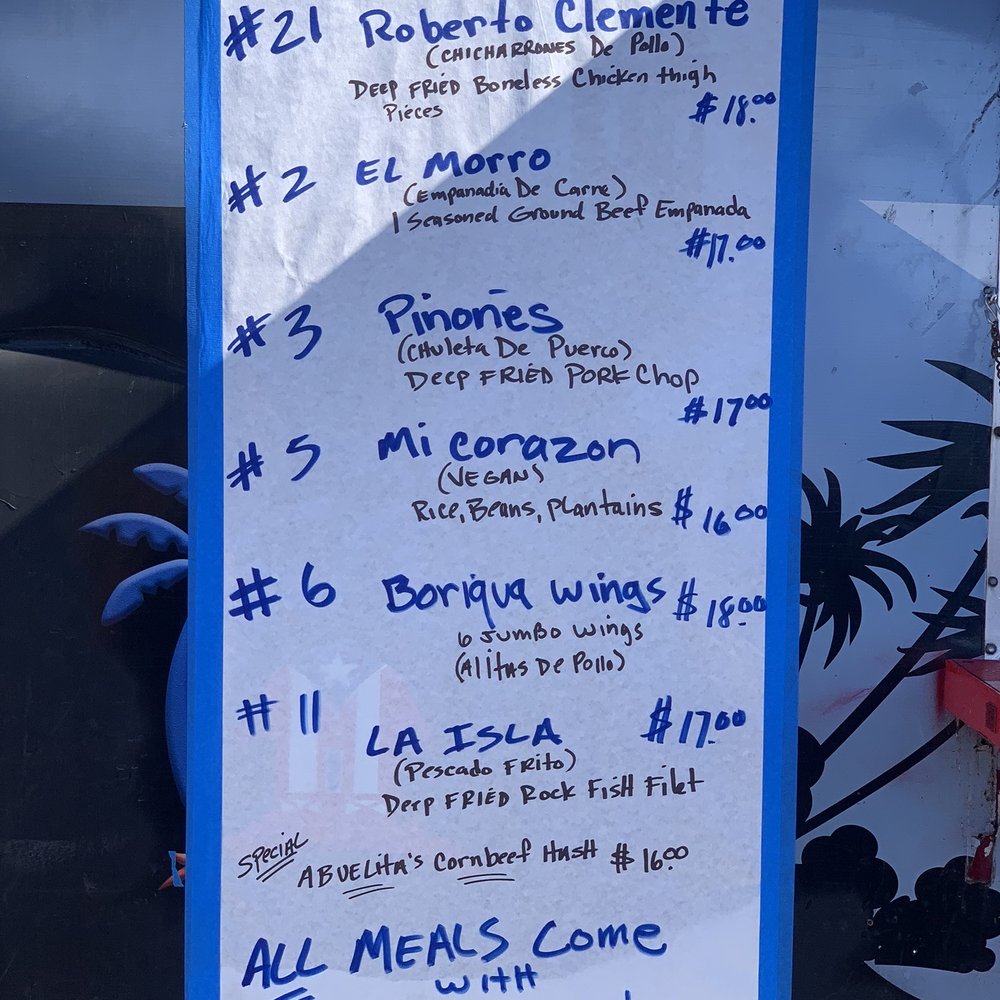 #21 Roberto Clemente
(CHICHARRONES De Pollo)
DEEP FRIED Boneless Chicken thigh
Pieces
$18.00
#2 EL Morro
(Empanadia De Carne)
1 Seasoned Ground Beef Empanada
$17.00
#3 Piñoñes
(CHuleta De Puerco)
DEEP FRIED PORK CHop
$17.00
#5 Mi corazon
(VEGAN)
Rice, Beans, Plantains $16.00
#6 Boriqua wings $18.00
6 Jumbo wings
(Alitas De Pollo)
#11 LA ISLA $17.00
(Pescado FRito)
Deep FRIED Rock FisH Filet
SPECIAL ABUELita's Cornbeef Hash $16.00
ALL MEALS Come
WITH